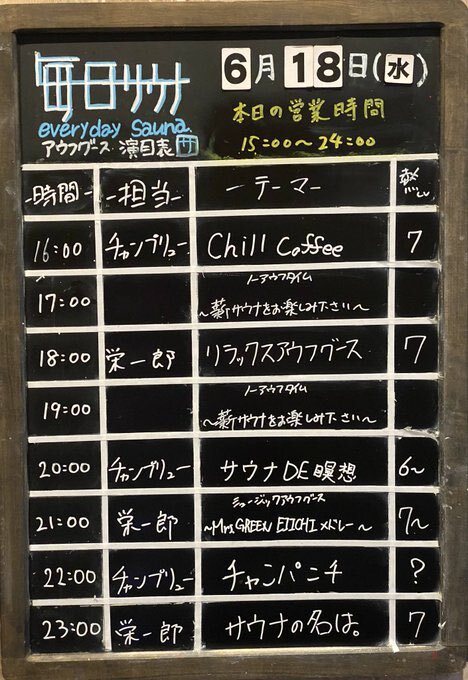 毎日サウナ
everyday sauna.
アウフグース 演目表 サ
6月18日(水)
本日の営業時間
15:00〜24:00
-時間- -担当- ーテーマー 熱Lv
16:00 チャンブリュー Chill Coffee 7
ノーアウフタイム
17:00 〜薪サウナをお楽しみ下さい〜
18:00 栄一郎 リラックスアウフグース 7
ノーアウフタイム
19:00 〜薪サウナをお楽しみ下さい〜
20:00 チャンブリュー サウナDE瞑想 6〜
ミュージックアウフグース
21:00 栄一郎 〜Mrs.GREEN EIICHI メドレー〜 7〜
22:00 チャンブリュー チャンパンチ ?
23:00 栄一郎 サウナの名は。 7